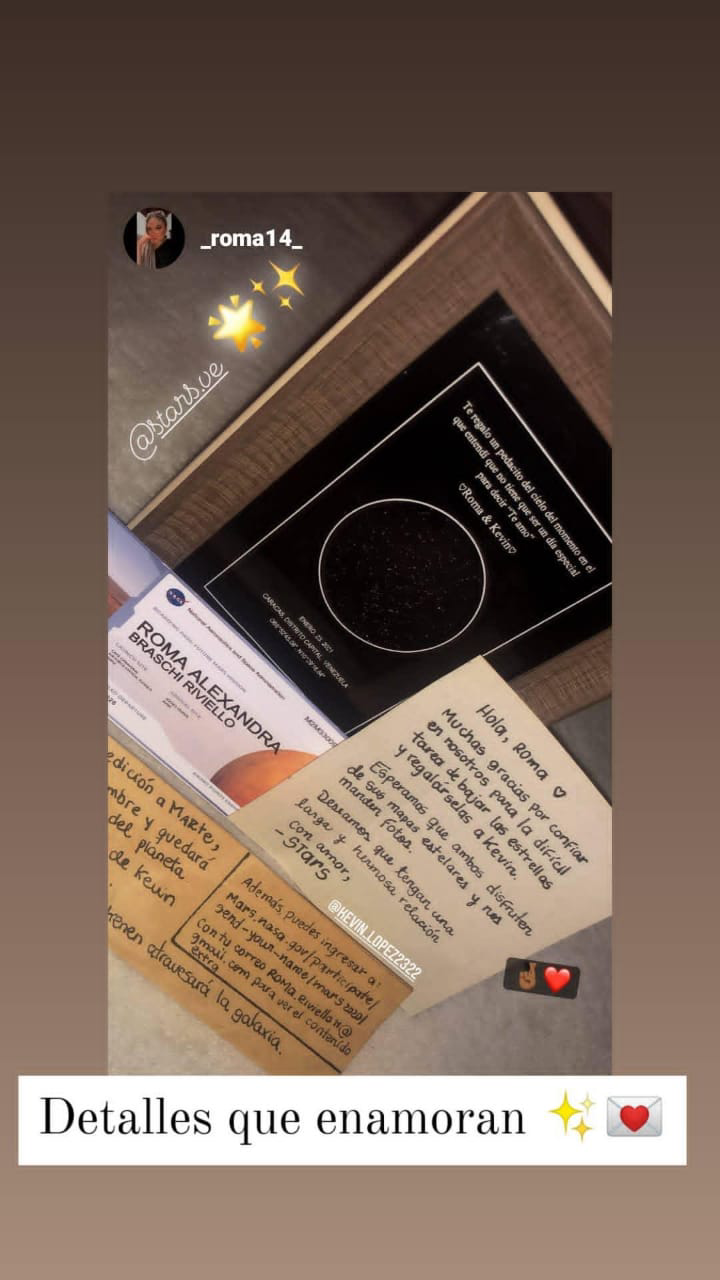 _roma14_
@stars.ve
Te regalo un pedacito del cielo del momento en el
que entendí que no tiene que ser un día especial
para decir "Te amo"
♡Roma & Kevin♡
ENERO, 23, 2021
CARACAS, DISTRITO CAPITAL, VENEZUELA
National Aeronautics and Space Administration
BOARDING PASS: FUTURE MARS MISSION
ROMA ALEXANDRA
BRASCHI RIVIELLO
LAUNCH SITE
Hola, ROMA ♡
Muchas gracias por confiar
en nosotros para la difícil
tarea de bajar las estrellas
y regalárselas a Kevin.
Esperamos que ambos disfruten
de sus mapas estelares y nos
manden fotos.
Deseamos que tengan una
larga y hermosa relación
con amor,
-STARS
edición a MARte,
mbre y quedará
del planeta
de Kevin
tienen atravesará la galaxia.
Además, puedes ingresar a:
Mars.nasa.gov/participate/
send-your-name/mars2020/
Con tu correo ROMA.Riviello14@
gmail.com para ver el contenido
extra
@KEVIN_LOPEZ2322
🤞🏾❤️
Detalles que enamoran ✨💌